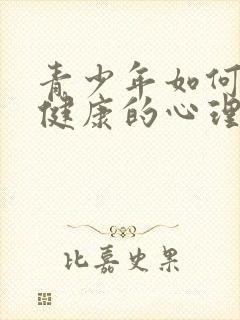 青少年如何
健康的心理
比嘉史果